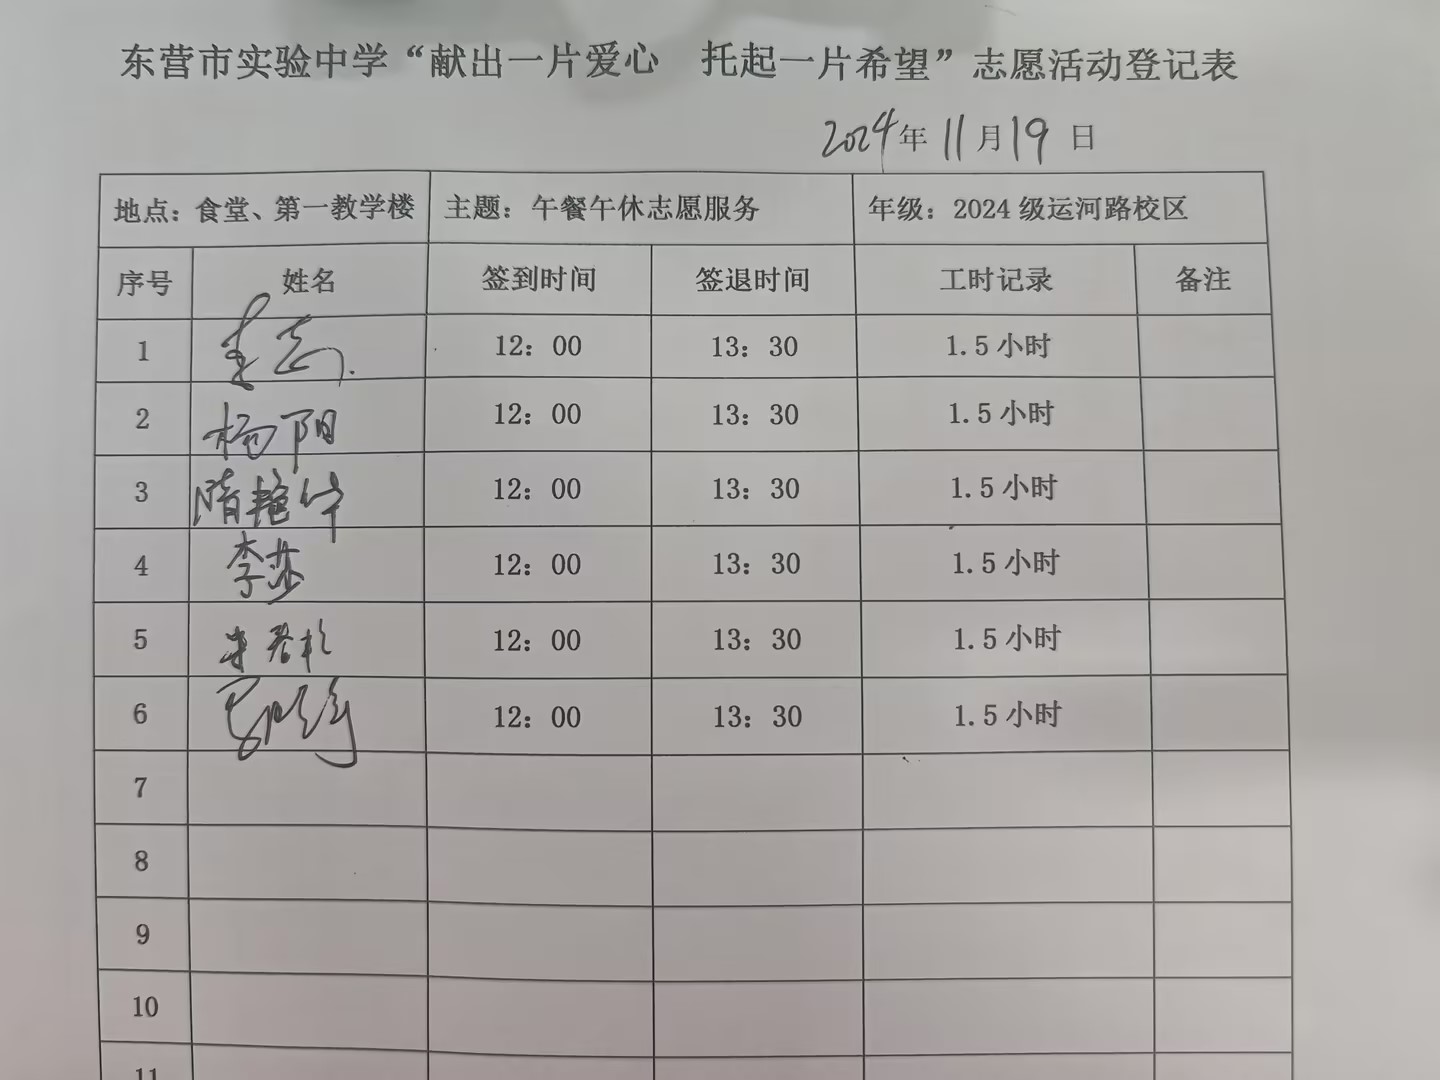 东营市实验中学“献出一片爱心 托起一片希望”志愿活动登记表
2024年11月19日
地点：食堂、第一教学楼 主题：午餐午休志愿服务 年级：2024级运河路校区
序号 姓名 签到时间 签退时间 工时记录 备注
1 12：00 13：30 1.5小时
2 杨阳 12：00 13：30 1.5小时
3 隋艳华 12：00 13：30 1.5小时
4 李莎 12：00 13：30 1.5小时
5 12：00 13：30 1.5小时
6 12：00 13：30 1.5小时
7
8
9
10
11